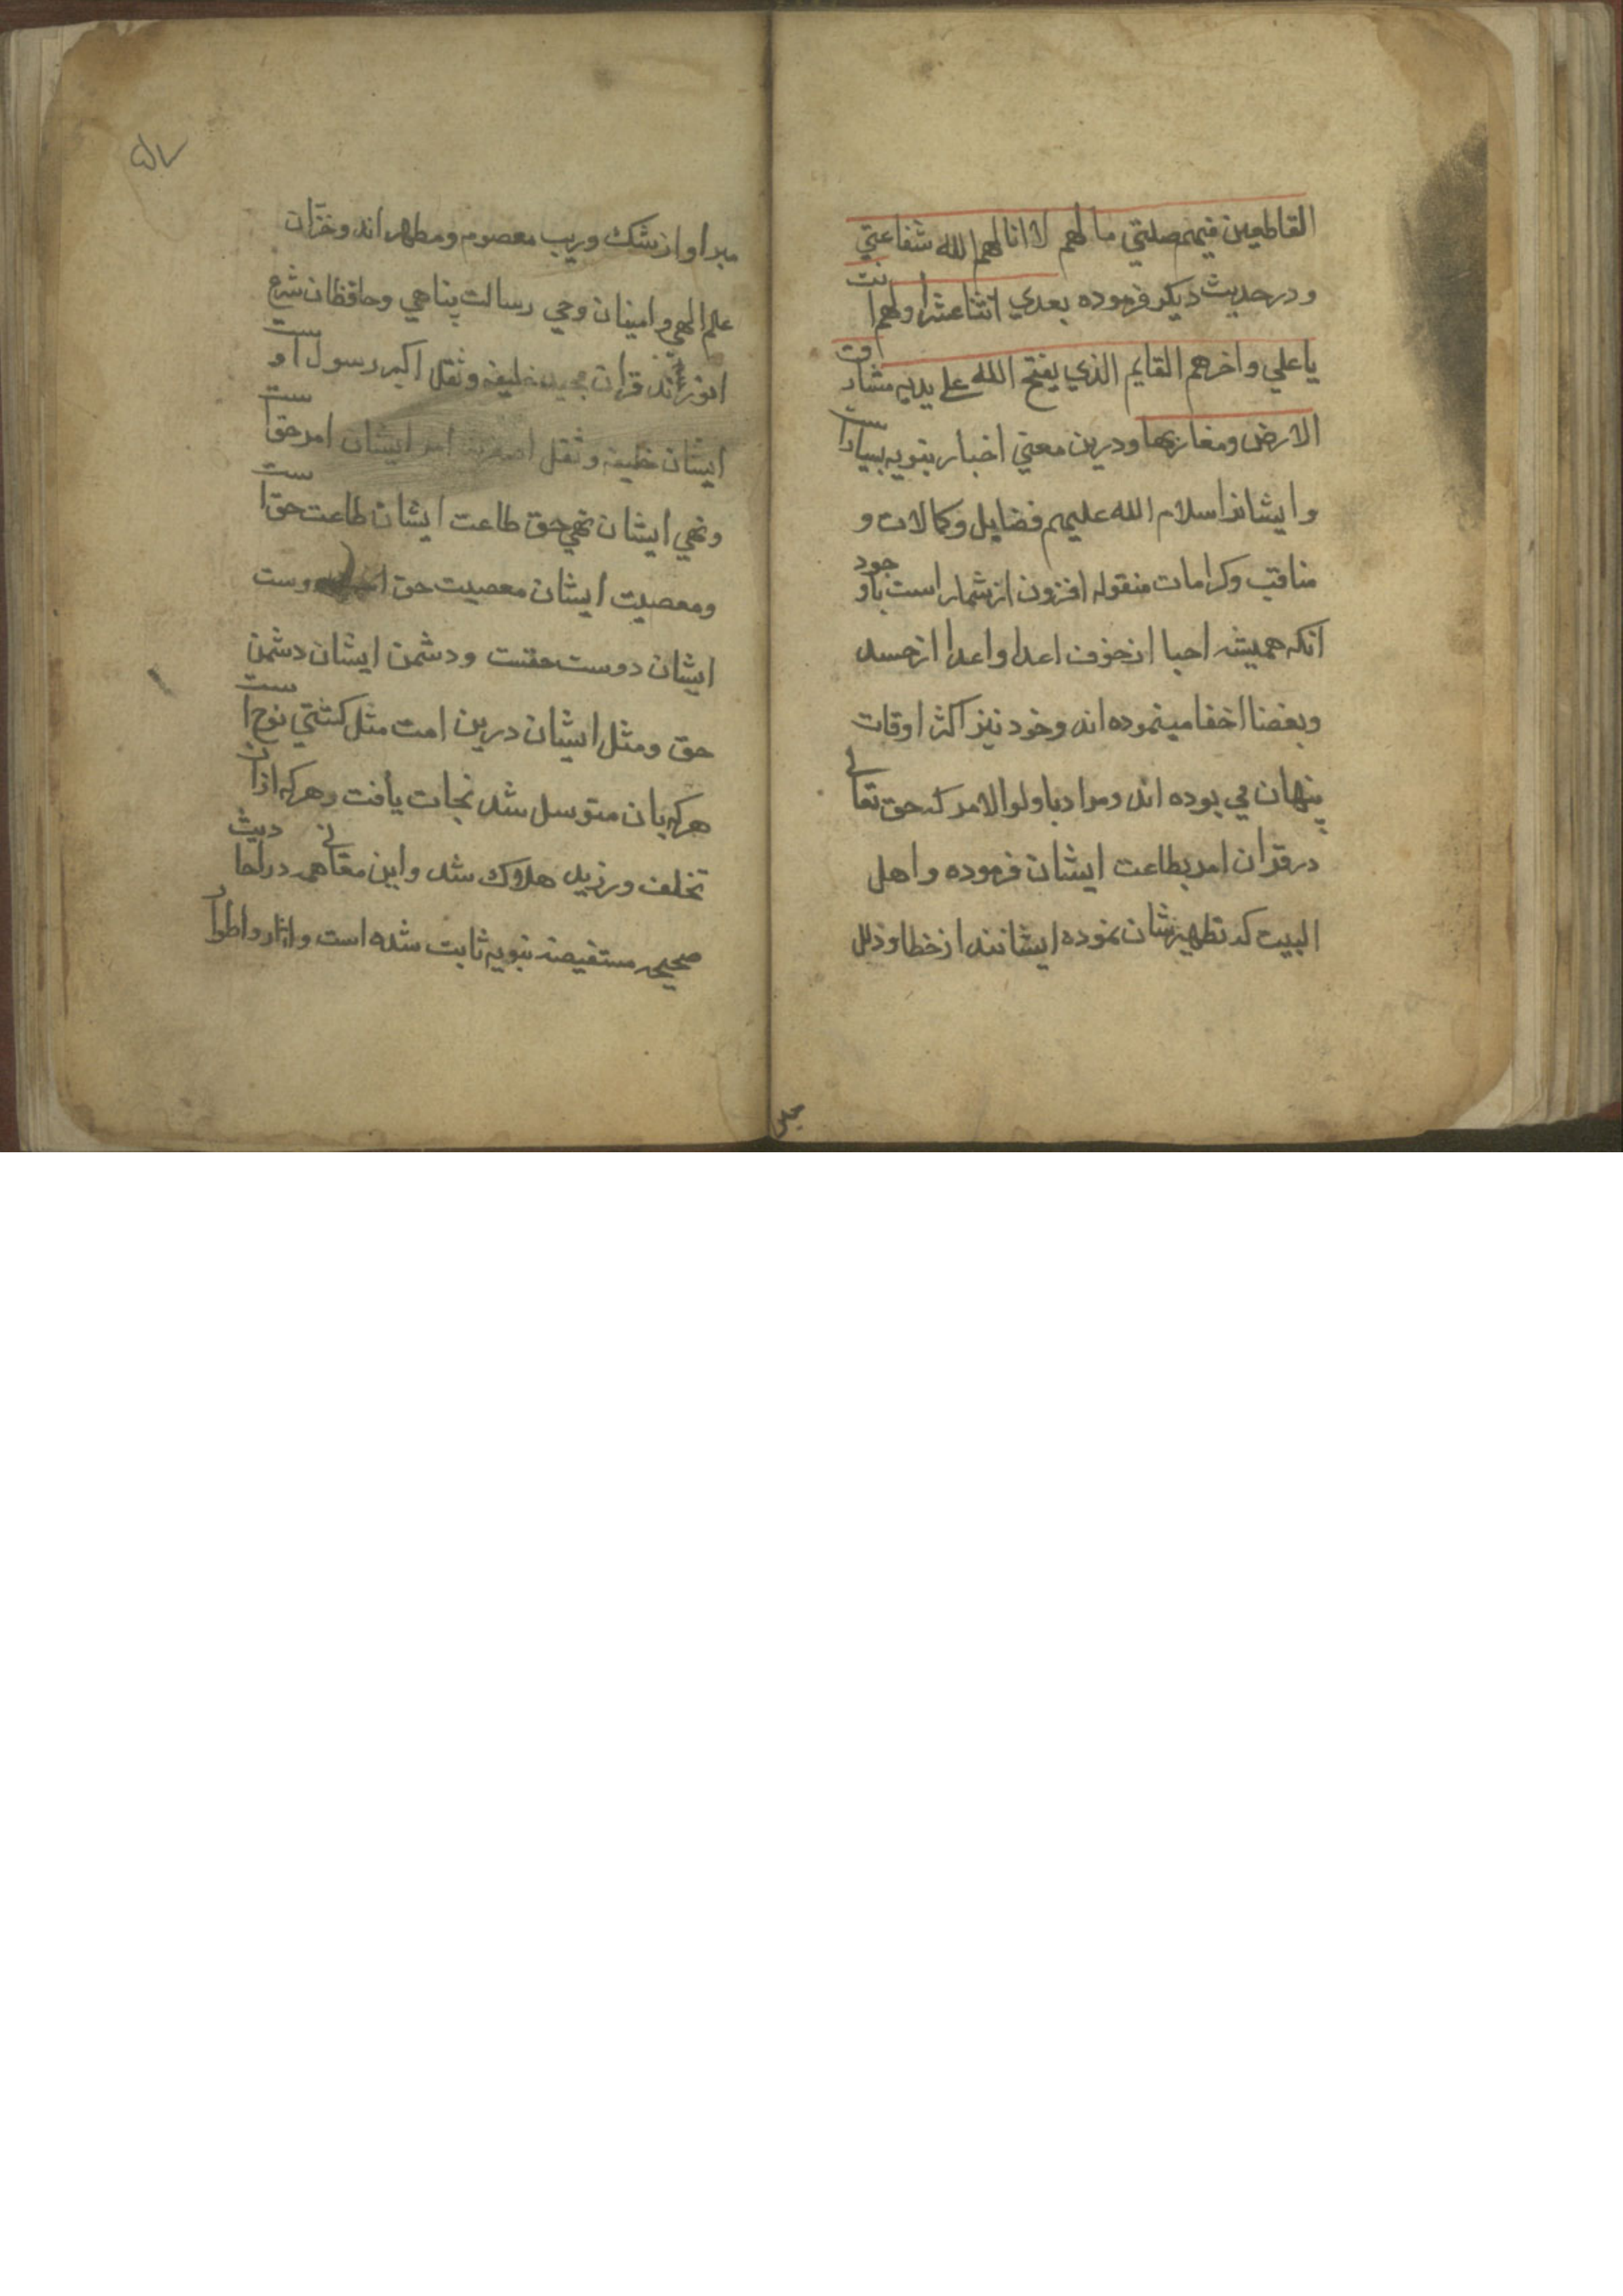 القاطعين فيهم صلتي ما لهم لا انالهم الله شفاعتي
و در حديث ديكر فرموده بعدي اثنا عشر اولهم انت
يا علي و اخرهم القايم الذي يفتح الله علي يديه مشارق
الارض ومغاربها و درين معني اخبار نبويه بسيارست
و ايشانرا سلام الله عليهم فضايل و كمالات و
مناقب و كرامات منقوله افزون از شمار است باوجود
انكه هميشه احبا از خوف اعدا و اعدا از حسد
و بغضنا اخفا مينموده اند و خود نيز اكثر اوقات
پنهان مي بوده اند و مراد باولوالامر كه حق تعالي
در قران امر بطاعت ايشان فرموده و اهل
البيت كه تطهيرشان نموده ايشانند از خطا و زلل
۵۷
مبرا و از شك و ريب معصوم و مطهر اند و خزّان
علم الهي و امينان وحي رسالت پناهي و حافظان شرع
انورند قران مجيد خليفه و ثقل اكبر رسول است و
ايشان خليفه و ثقل اصغرند امر ايشان امر حق است
و نهي ايشان نهي حق طاعت ايشان طاعت حق است
و معصيت ايشان معصيت حق است دوست
ايشان دوست حقست و دشمن ايشان دشمن
حق و مثل ايشان درين امت مثل كشتي نوح است
هركه بان متوسل شد نجات يافت و هركه ازان
تخلف ورزيد هلاك شد و اين معاني همه در احاديث
صحيحه مستفيضه نبويه ثابت شده است و اثار و اطوار